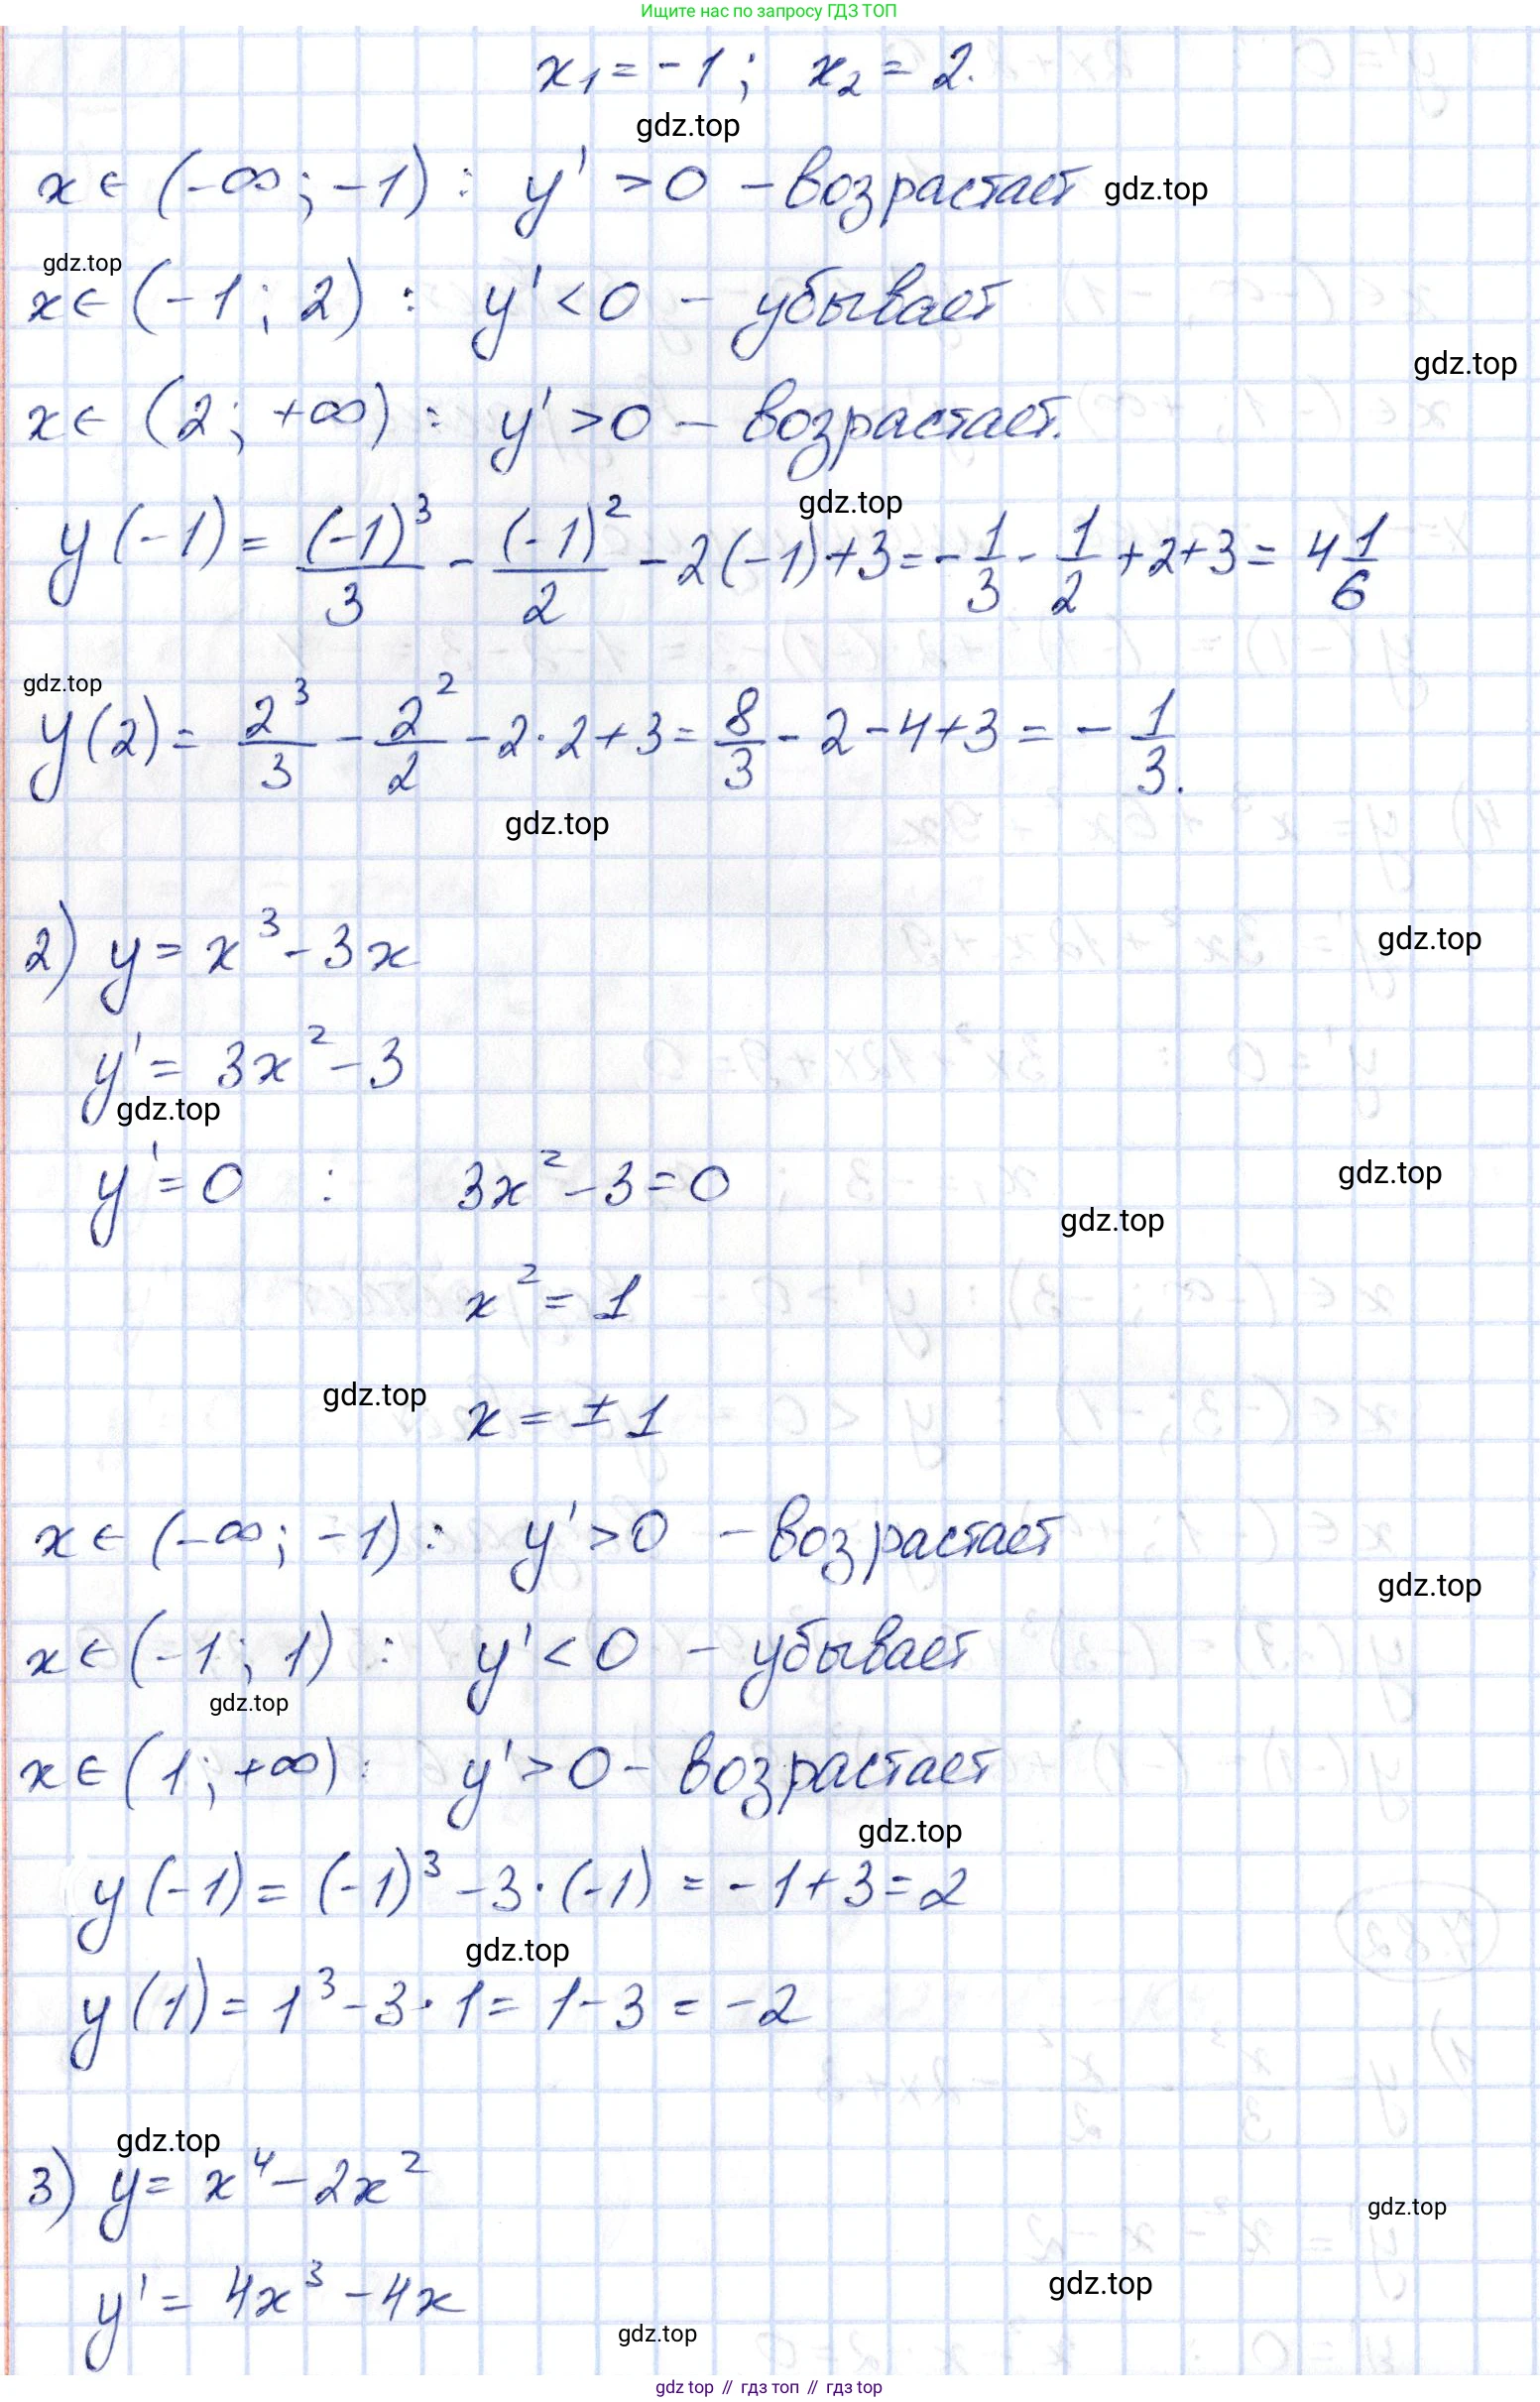 Ищите нас по запросу ГДЗ ТОП
x₁ = -1; x₂ = 2.
gdz.top
x ∈ (-∞; -1): y' > 0 - возрастает gdz.top
gdz.top
x ∈ (-1; 2): y' < 0 - убывает
gdz.top
x ∈ (2; +∞): y' > 0 - возрастает.
gdz.top
y(-1) = (-1)³/3 - (-1)²/2 - 2(-1) + 3 = -1/3 - 1/2 + 2 + 3 = 4 1/6
gdz.top
y(2) = 2³/3 - 2²/2 - 2·2 + 3 = 8/3 - 2 - 4 + 3 = -1/3.
gdz.top
2) y = x³ - 3x
gdz.top
y' = 3x² - 3
gdz.top
y' = 0 : 3x² - 3 = 0
gdz.top
gdz.top
x² = 1
gdz.top
x = ±1
x ∈ (-∞; -1): y' > 0 - возрастает
gdz.top
x ∈ (-1; 1) : y' < 0 - убывает
gdz.top
x ∈ (1; +∞): y' > 0 - возрастает
gdz.top
y(-1) = (-1)³ - 3·(-1) = -1 + 3 = 2
gdz.top
y(1) = 1³ - 3·1 = 1 - 3 = -2
gdz.top
3) y = x⁴ - 2x²
gdz.top
y' = 4x³ - 4x
gdz.top
gdz.top
gdz top // гдз топ // гдз top